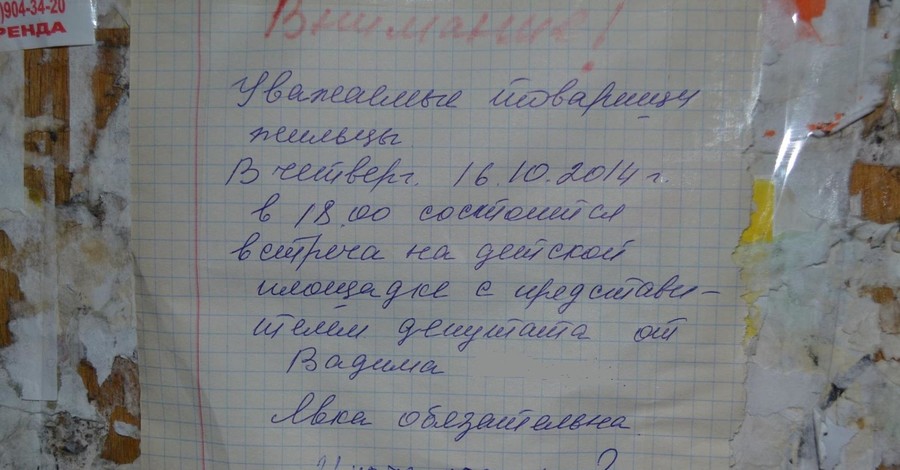 )904-34-20
РЕНДА
Внимание!
Уважаемые товарищи
жильцы
В четверг. 16.10.2014 г.
в 18.00 состоится
встреча на детской
площадке с представи-
телем депутата от
Вадима
Явка обязательна